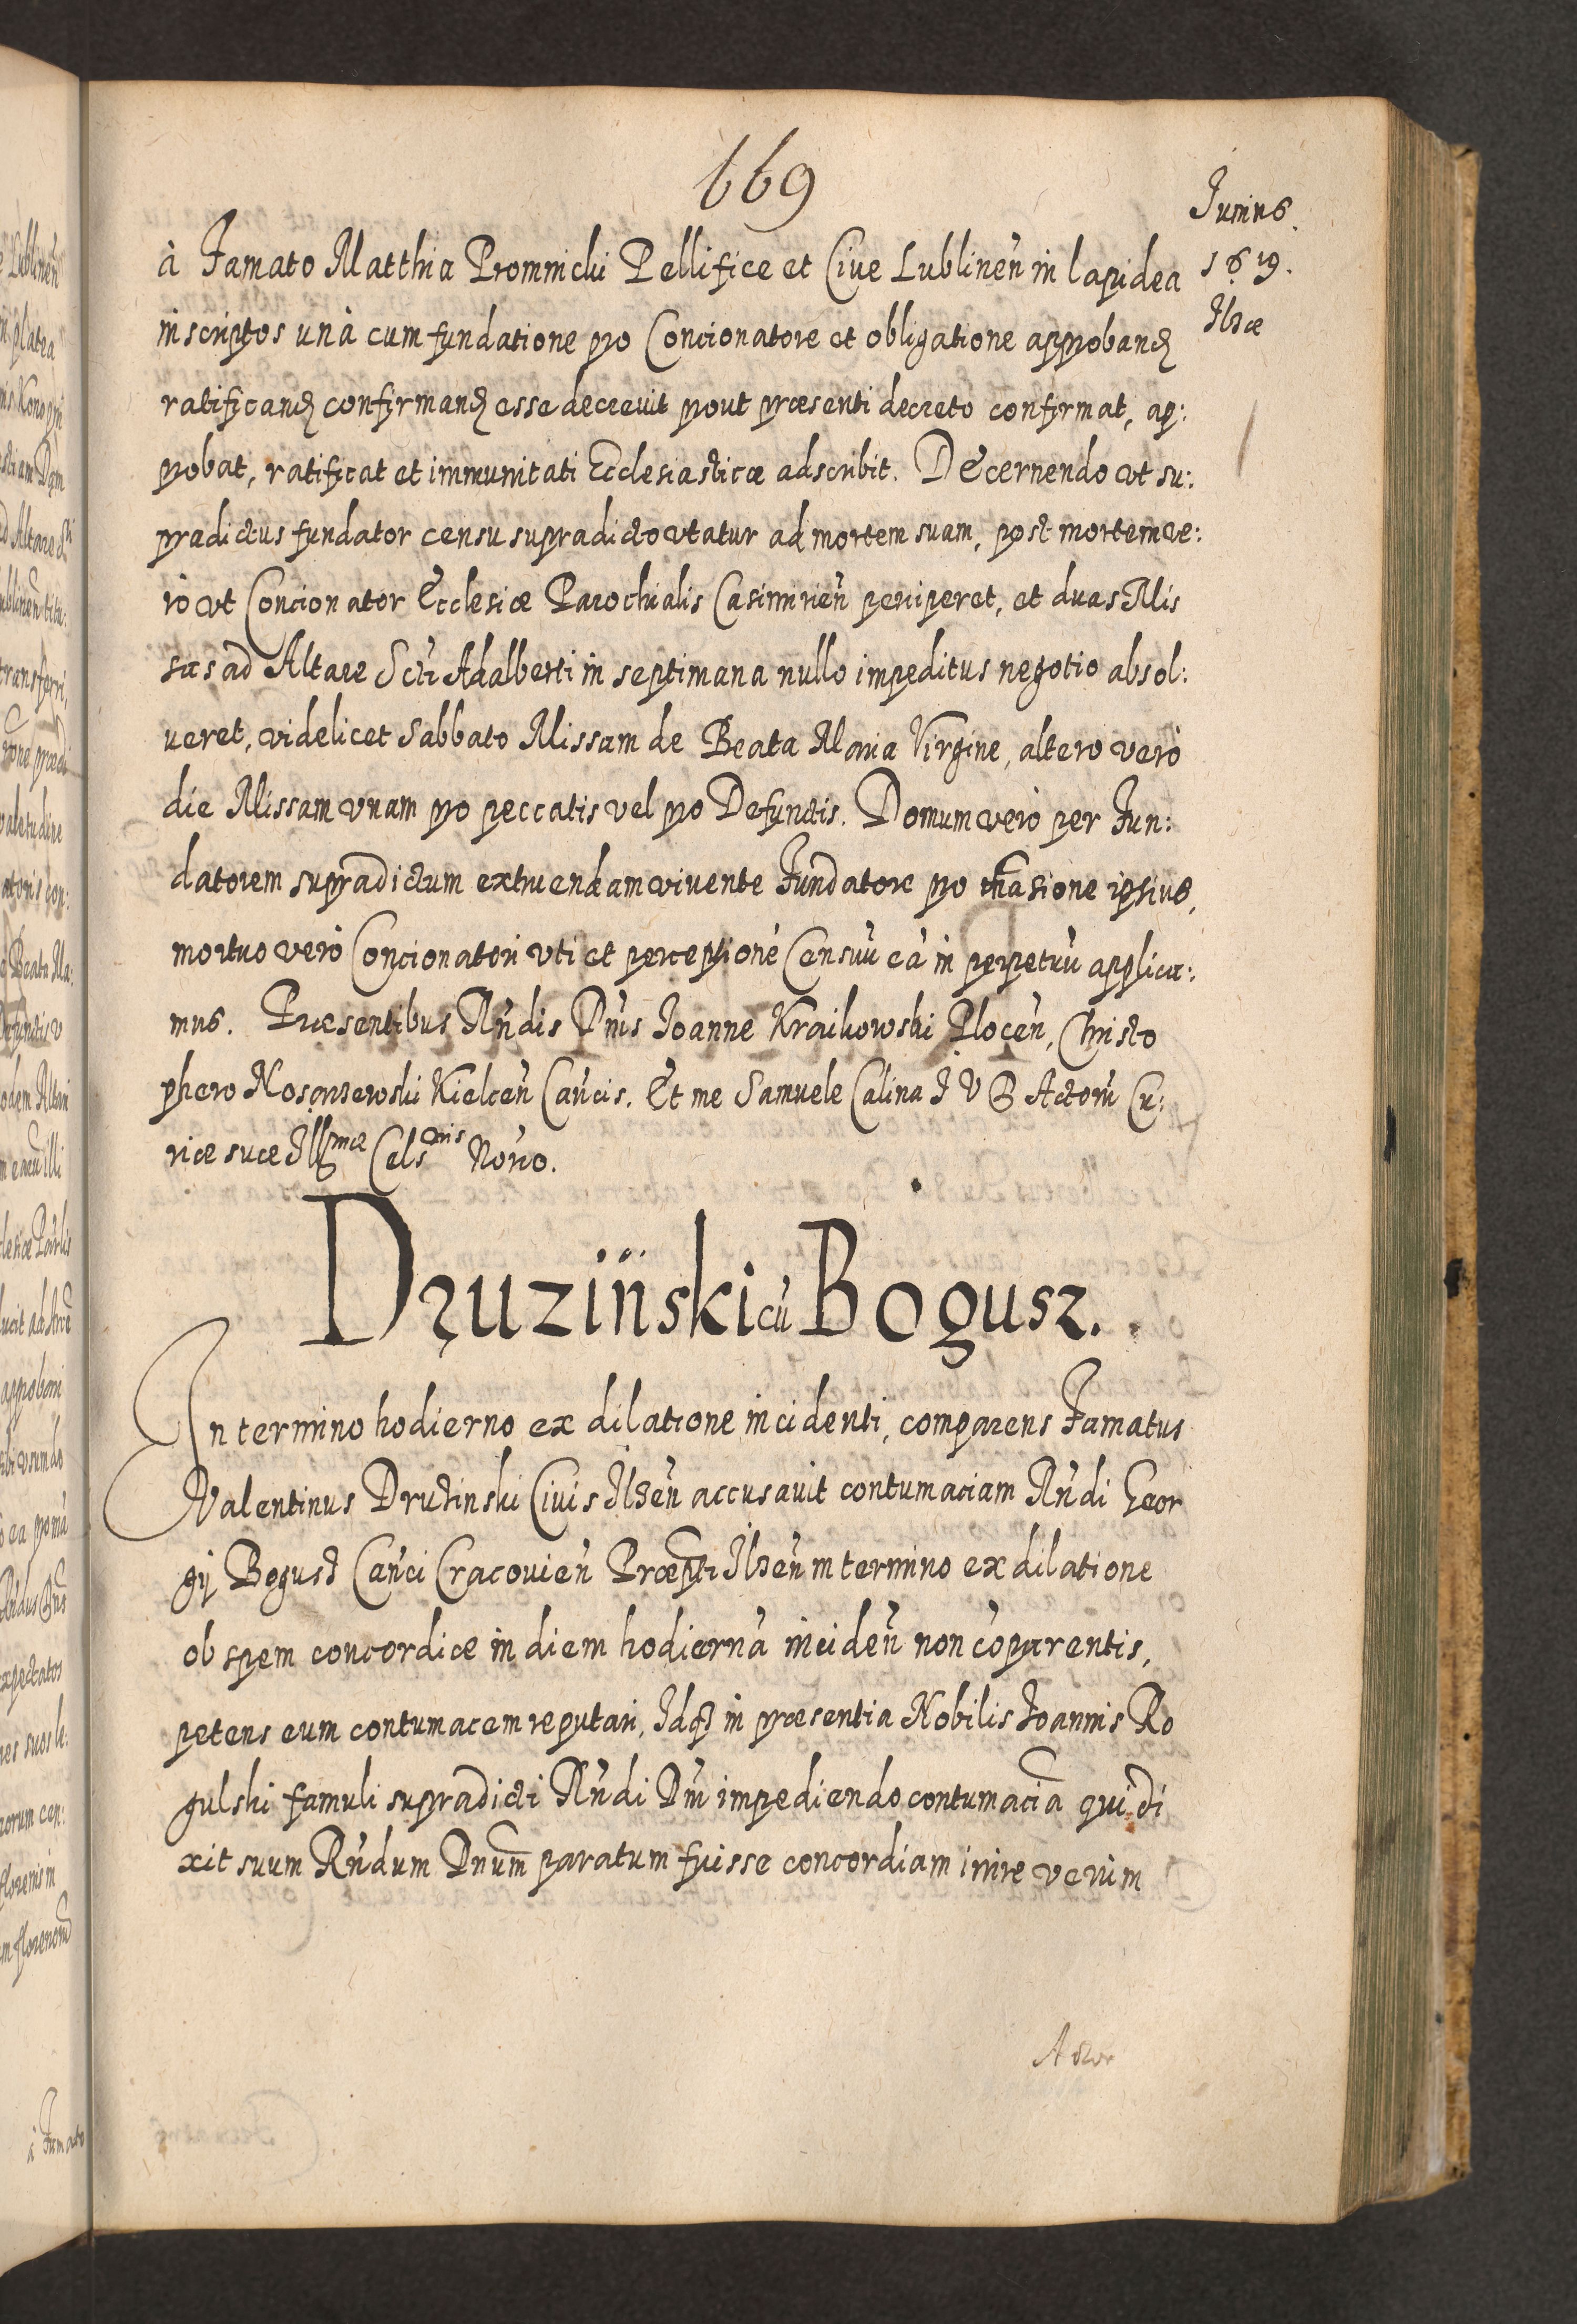 669
Junius.
1619.
Ilzæ
à Famato Matthia Promnicki Pellifice et Cive Lublineñ in lapidea
inscriptos unà cum fundatione pro Concionatore et obligatione approband
ratificand confirmand esse decrevit prout præsenti decreto confirmat, ap:
probat, ratificat et immunitati Ecclesiasticæ adscribit. Decernendo vt su:
pradictus fundator censu supradicto vtatur ad mortem suam, post mortem ve:
rò vt Concionator Ecclesiæ Parochialis Casimirieñ perciperet, et duas Mis
sas ad Altare Scti Adalberti in septimana nullo impeditus negotio absol:
ueret, videlicet Sabbato Missam de Beata Maria Virgine, altero verò
die Missam vnam pro peccatis vel pro Defunctis. Domum verò per Fun:
datorem supradictum extruendam vivente Fundatore pro mãsione ipsius,
mortuo verò Concionatori vti et perceptionē Censuū eā in perpetuū applica:
mus. Præsentibus Rñdis Dñis Joanne Kraikowski Ploceñ, Christo
phero Nosarzewski Kielceñ Cañcis. Et me Samuele Calina J V D Actorū Cu:
riæ suæ Illmæ Celsnis Norio.
Druzinski cū Bogusz.
In termino hodierno ex dilatione incidenti, comparens Famatus
Valentinus Druzinski Civis Ilzeñ accusavit contumaciam Rñdi Geor
gij Bogusz Cañci Cracovieñ Præpti Ilzeñ in termino ex dilatione
ob spem concordiæ in diem hodiernā incideñ non cōparentis,
petens eum contumacem reputari, Idq in præsentia Nobilis Joannis Ro
gulski famuli supradicti Rñdi Dñi impediendo contumaciã qui di
xit suum Rñdum Dnum paratum fuisse concordiam inire verùm
Actor